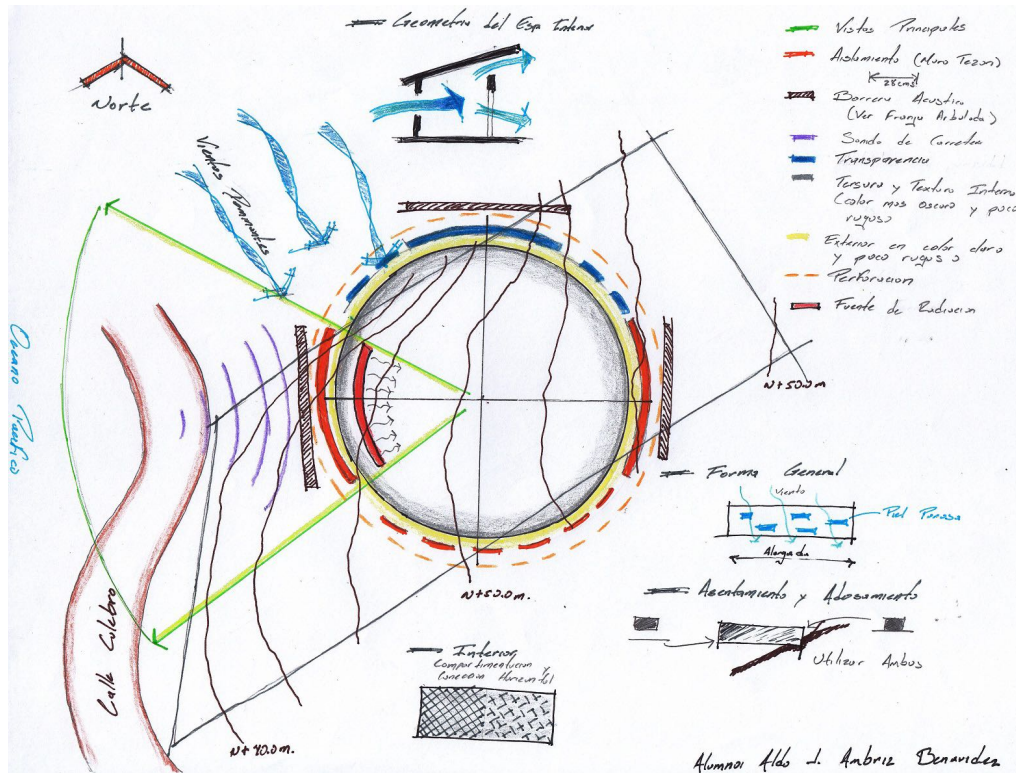 Geometria del Esp Interior
Norte
Vientos Dominantes
Vistas Principales
Aislamiento (Muro Tezon)
28cms
Barrera Acustica
(Ver Franja Arbolada)
Sonido de Carretera
Transparencia
Tersura y Textura Interna
(color mas oscuro y poco
rugoso
Exterior en color claro
y poco rugoso
Perforacion
Fuente de Radiacion
Oceano Pacifico
N+50.0m
Forma General
Viento
Piel Porosa
Alargada
N+50.0m.
Asentamiento y Adosamiento
Utilizar Ambos
Calle Culebra
Interior
Compartimentacion y
Coneccion Horizontal
Alumno: Aldo J. Ambriz Benavidez